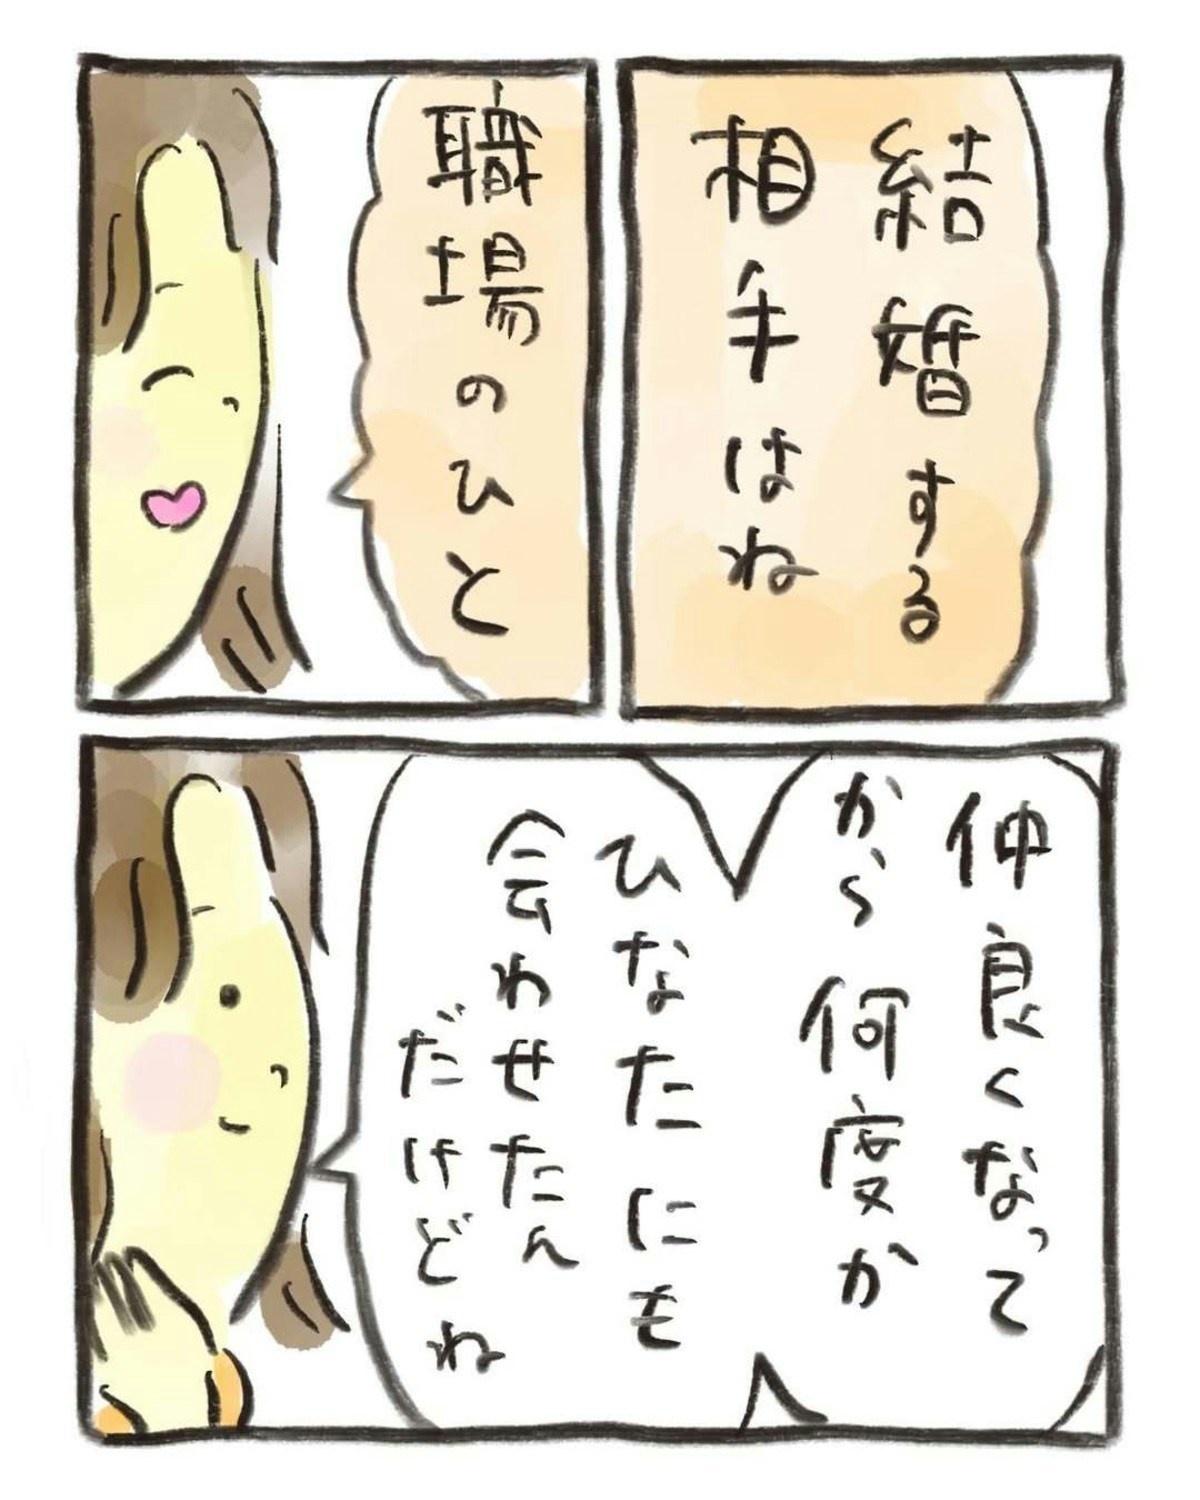 結婚する
相手はね
職場のひと
仲良くなって
から何度か
ひなたにも
会わせたん
だけどね